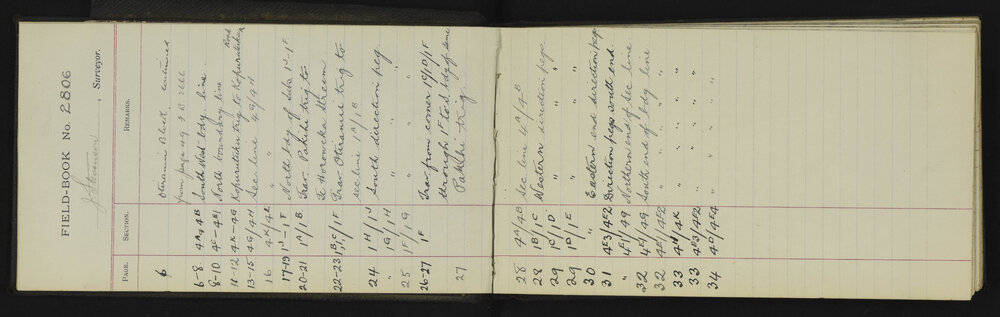 FIELD-BOOK No. 2806
, Surveyor.
PAGE. SECTION. REMARKS.
6 Block continued
from page 49 F.B. 2666
6-8 4A, 4B South West bdy. line
8-10 4C-4E1 North boundary line
Road
11-12 4K-4G Kopuratahi trig to
13-15 4G/4H Sec line 4G/4H
16 4K/4L " "
17-19 1J-1F North bdy of subs 1J-1F
20-21 1A/1B Trav. Pakihi trig to
Te Horowera stream
22-23 1B,C/1F Trav Oteranui trig to
sec line 1A/1B
24 1H/1J South direction peg
" 1G/1H " "
25 1F/1G " "
26-27 1F Trav from corner 1C/1D/1F
through 1F to S bdy of same
27 Pakihi trig.
28 4A/4B Sec line 4A/4B
28 1B/1C Western direction peg
29 1C/1D " "
29 1D/1E " "
30 " Eastern end direction peg
31 4E3/4E2 Direction pegs south end
" 4E1/4G Northern end of sec line
32 4E/4G South end of bdy line
32 4E1/4E2 " "
33 4H/4K " "
33 4E3/4E2 " "
34 4D/4E4 " "